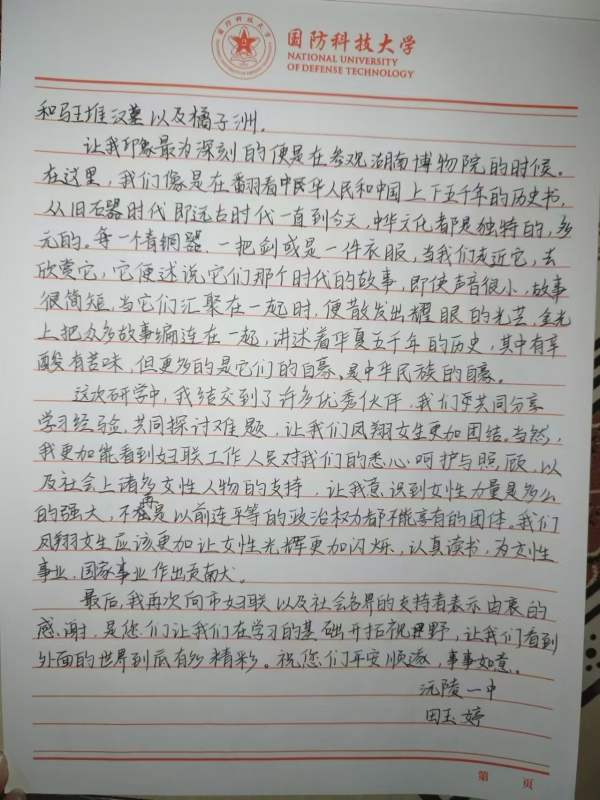 国防科技大学
NATIONAL UNIVERSITY
OF DEFENSE TECHNOLOGY
和马王堆汉墓以及橘子洲。
让我印象最为深刻的便是在参观湖南博物院的时候。
在这里，我们像是在翻看中华人民和中国上下五千年的历史书，
从旧石器时代即远古时代一直到今天，中华文化都是独特的，多
元的。每一个青铜器、一把剑或是一件衣服，当我们走近它，去
欣赏它，它便述说它们那个时代的故事，即使声音很小，故事
很简短，当它们汇聚在一起时，便散发出耀眼的光芒，金光
上把众多故事编连在一起，讲述着华夏五千年的历史，其中有辛
酸有苦味，但更多的是它们的自豪、是中华民族的自豪。
这次研学中，我结交到了许多优秀伙伴，我们共同分享
学习经验，共同探讨难题，让我们凤翔女生更加团结。当然，
我更加能看到妇联工作人员对我们的悉心呵护与照顾，以
及社会上诸多女性人物的支持，让我意识到女性力量是多么
的强大，不再是以前连平等的政治权力都不能享有的团体。我们
凤翔女生应该更加让女性光辉更加闪烁，认真读书，为女性
事业、国家事业作出贡献。
最后，我再次向市妇联以及社会各界的支持者表示由衷的
感谢，是您们让我们在学习的基础开拓视野，让我们看到
外面的世界到底有多精彩。祝您们平安顺遂，事事如意。
沅陵一中
田玉婷
第 页